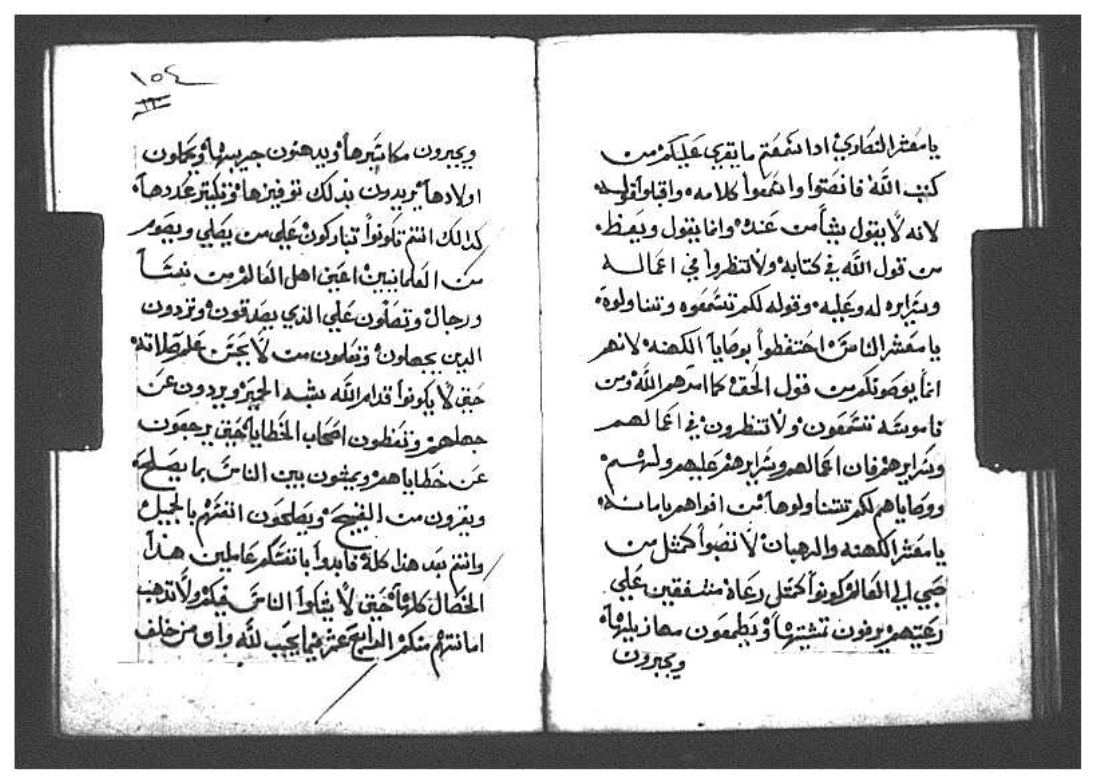 يا معشر النصاري اذا سمعتم ما يقري عليكم من
كتب الله فانصتوا واسمعوا كلامه واقبلوا قوله
لانه لا يقول شيأ من عنده وانما يقول ويعظ
من قول الله في كتابه ولا تنظروا في اعماله
وسرايره له وعليه وقوله لكم تسمعوه وتتناولوه
يا معشر الناس احتفظوا بوصايا الكهنه لانهم
انما يوصونكم من قول الحق كما امرهم الله ومن
ناموسه تسمعون ولا تنظرون في اعمالهم
وسرايرهم فان اعمالهم وسرايرهم عليهم ولهم
ووصاياهم لكم تتناولوها من افواههم بامانه
يا معشر الكهنه والرهبان لا تصبوا كمثل من
صبي الي العالم كونوا كمثل رعاة مشفقين علي
رعيتهم يرفون تشتيتها ويطعمون مهازيلها
ويجبرون
١٥٤
ويجبرون مكاسيرها ويدهنون جريبها ويحملون
اولادها يريدون بذلك توفيرها وتكتير عددها
كذالك انتم تكونوا تباركون علي من يصلي ويصوم
من العلمانيين اعني اهل العالم من نسا
ورجال وتصلون علي الذي يصدقون وتردون
الدين يجهلون وتعلمون من لا يحسن علم صلاته
حتي لا يكونوا قدام الله شبه الحمير ويردون عن
جهلهم وتعظون اصحاب الخطايا حتي يرجعون
عن خطاياهم ويمشون بين الناس بما يصلح
ويفرون من القبيح ويصلحون انفسهم بالجميل
وانتم بعد هذا كله فابدوا بانفسكم عاملين هذا
الخصال كلها حتي لا يشكوا الناس فيكم ولا تدهب
امانتهم منكم الرابع عشر فيما يجب لله واي من خلف